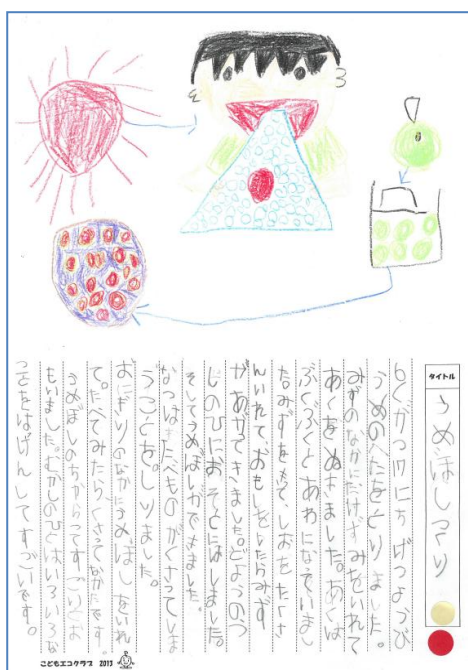 タイトル
うめぼしつくり
6がつ17にち げつようび
うめのへたをとりました。
みずのなかにたけずみをいれて
あくをぬきました。あくは
ぶくぶくとあわになっていまし
た。みずをすて、しおをたくさ
んいれて、おもしをいたらみず
があがってきました。どようのう
しのひにおそとにほしました。
そしてうめぼしができました。
なつは、たべものがくさってしま
うことを、しりました。
おにぎりのなかにうめぼしをいれ
て。たべてみたら、くさってなかたです。
うめぼしのちからってすごいとお
もいました。むかしのひとはいろいろな
ことをはっけんしてすごいです。
こどもエコクラブ 2013